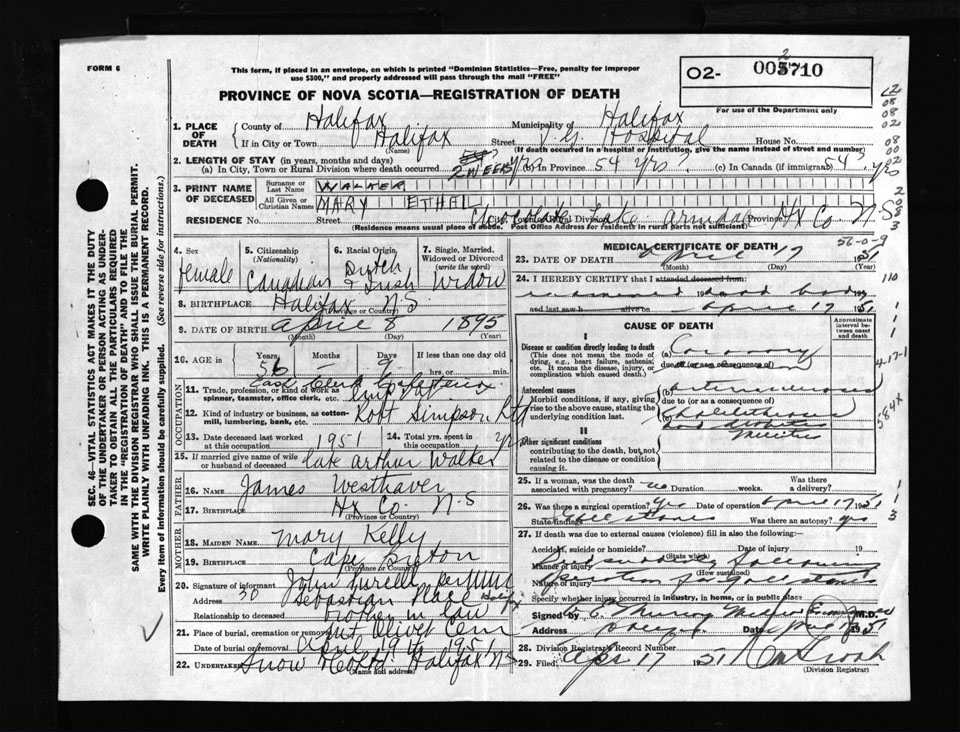 FORM 6
This form, if placed in an envelope, on which is printed "Dominion Statistics—Free, penalty for improper
use $300," and properly addressed will pass through the mail "FREE"
PROVINCE OF NOVA SCOTIA—REGISTRATION OF DEATH
02- 003710
2
For use of the Department only
SEC. 46—VITAL STATISTICS ACT MAKES IT THE DUTY
OF THE UNDERTAKER OR PERSON ACTING AS UNDER-
TAKER TO OBTAIN ALL THE PARTICULARS REQUIRED
IN THE "REGISTRATION OF DEATH" AND TO FILE THE
SAME WITH THE DIVISION REGISTRAR WHO SHALL ISSUE THE BURIAL PERMIT.
WRITE PLAINLY WITH UNFADING INK. THIS IS A PERMANENT RECORD.
Every item of information should be carefully supplied. (See reverse side for instructions.)
1. PLACE OF DEATH
County of Halifax Municipality of Halifax
If in City or Town Halifax Street V.G. Hospital House No.
(Name) (If death occurred in a hospital or institution, give the name instead of street and number)
2. LENGTH OF STAY (in years, months and days)
(a) In City, Town or Rural Division where death occurred 2 WEEKS (b) In Province 54 yrs. (c) In Canada (if immigrant) 54 yrs
3. PRINT NAME OF DECEASED
Surname or Last Name WALKER
All Given or Christian Names MARY ETHAL
RESIDENCE No. Street City, Town or Rural Division Chocolate Lake Armdale Province Hx Co N-S
(Residence means usual place of abode. Post Office Address for residents in rural parts not sufficient)
4. Sex female
5. Citizenship (Nationality) Canadian
6. Racial Origin Dutch & Irish
7. Single, Married, Widowed or Divorced (write the word) Widow
8. BIRTHPLACE Halifax N-S
(Province or Country)
9. DATE OF BIRTH April 8 1895
(Month) (Day) (Year)
10. AGE in Years 56 Months — Days 9 If less than one day old
hrs. or min.
OCCUPATION
11. Trade, profession, or kind of work as
spinner, teamster, office clerk, etc. Cash Clerk
12. Kind of industry or business, as cotton-
mill, lumbering, bank, etc. Robt Simpson Ltd
13. Date deceased last worked
at this occupation 1951
14. Total yrs. spent in
this occupation
15. If married give name of wife
or husband of deceased late Arthur Walker
FATHER
16. NAME James Westhaver
17. BIRTHPLACE Hx Co. N-S
(Province or Country)
MOTHER
18. MAIDEN NAME Mary Kelly
19. BIRTHPLACE Cape Breton
(Province or Country)
20. Signature of informant John
Address 30 Sebastian Place Halifax
Relationship to deceased brother in law
21. Place of burial, cremation or removal Mt Olivet Cem
Date of burial or removal April 19th 1951
22. UNDERTAKER Snow & Co Ltd Halifax N-S
(Name and address)
MEDICAL CERTIFICATE OF DEATH
56-0-9
23. DATE OF DEATH April 17 1951
(Month) (Day) (Year)
24. I HEREBY CERTIFY that I attended deceased from:
examined dead body
and last saw h alive on April 17 1951
CAUSE OF DEATH
Approximate
interval be-
tween onset
and death
I
Disease or condition directly leading to death
(This does not mean the mode of
dying, e.g., heart failure, asthenia,
etc. It means the disease, injury, or
complication which caused death.)
(a) Coronary
due to (or as a consequence of)
Antecedent causes
Morbid conditions, if any, giving
rise to the above cause, stating the
underlying condition last.
(b) arteriosclerosis
due to (or as a consequence of)
(c) Cholelithiasis
II
Other significant conditions
contributing to the death, but not
related to the disease or condition
causing it.
and diabetes
mellitus
25. If a woman, was the death
associated with pregnancy? no Duration weeks. Was there
a delivery?
26. Was there a surgical operation? Yes Date of operation April 17 1951
State findings Gallstones Was there an autopsy? yes
27. If death was due to external causes (violence) fill in also the following:—
Accident, suicide or homicide? Date of injury 19
(State which)
Manner of injury suddenly following
(How sustained)
Nature of injury operation for gallstones
Specify whether injury occurred in industry, in home, or in public place
Signed by M.D.
Address Date 1951
28. Division Registrar's Record Number
29. Filed Apr 17 1951
(Division Registrar)
110
4-17-1
584X